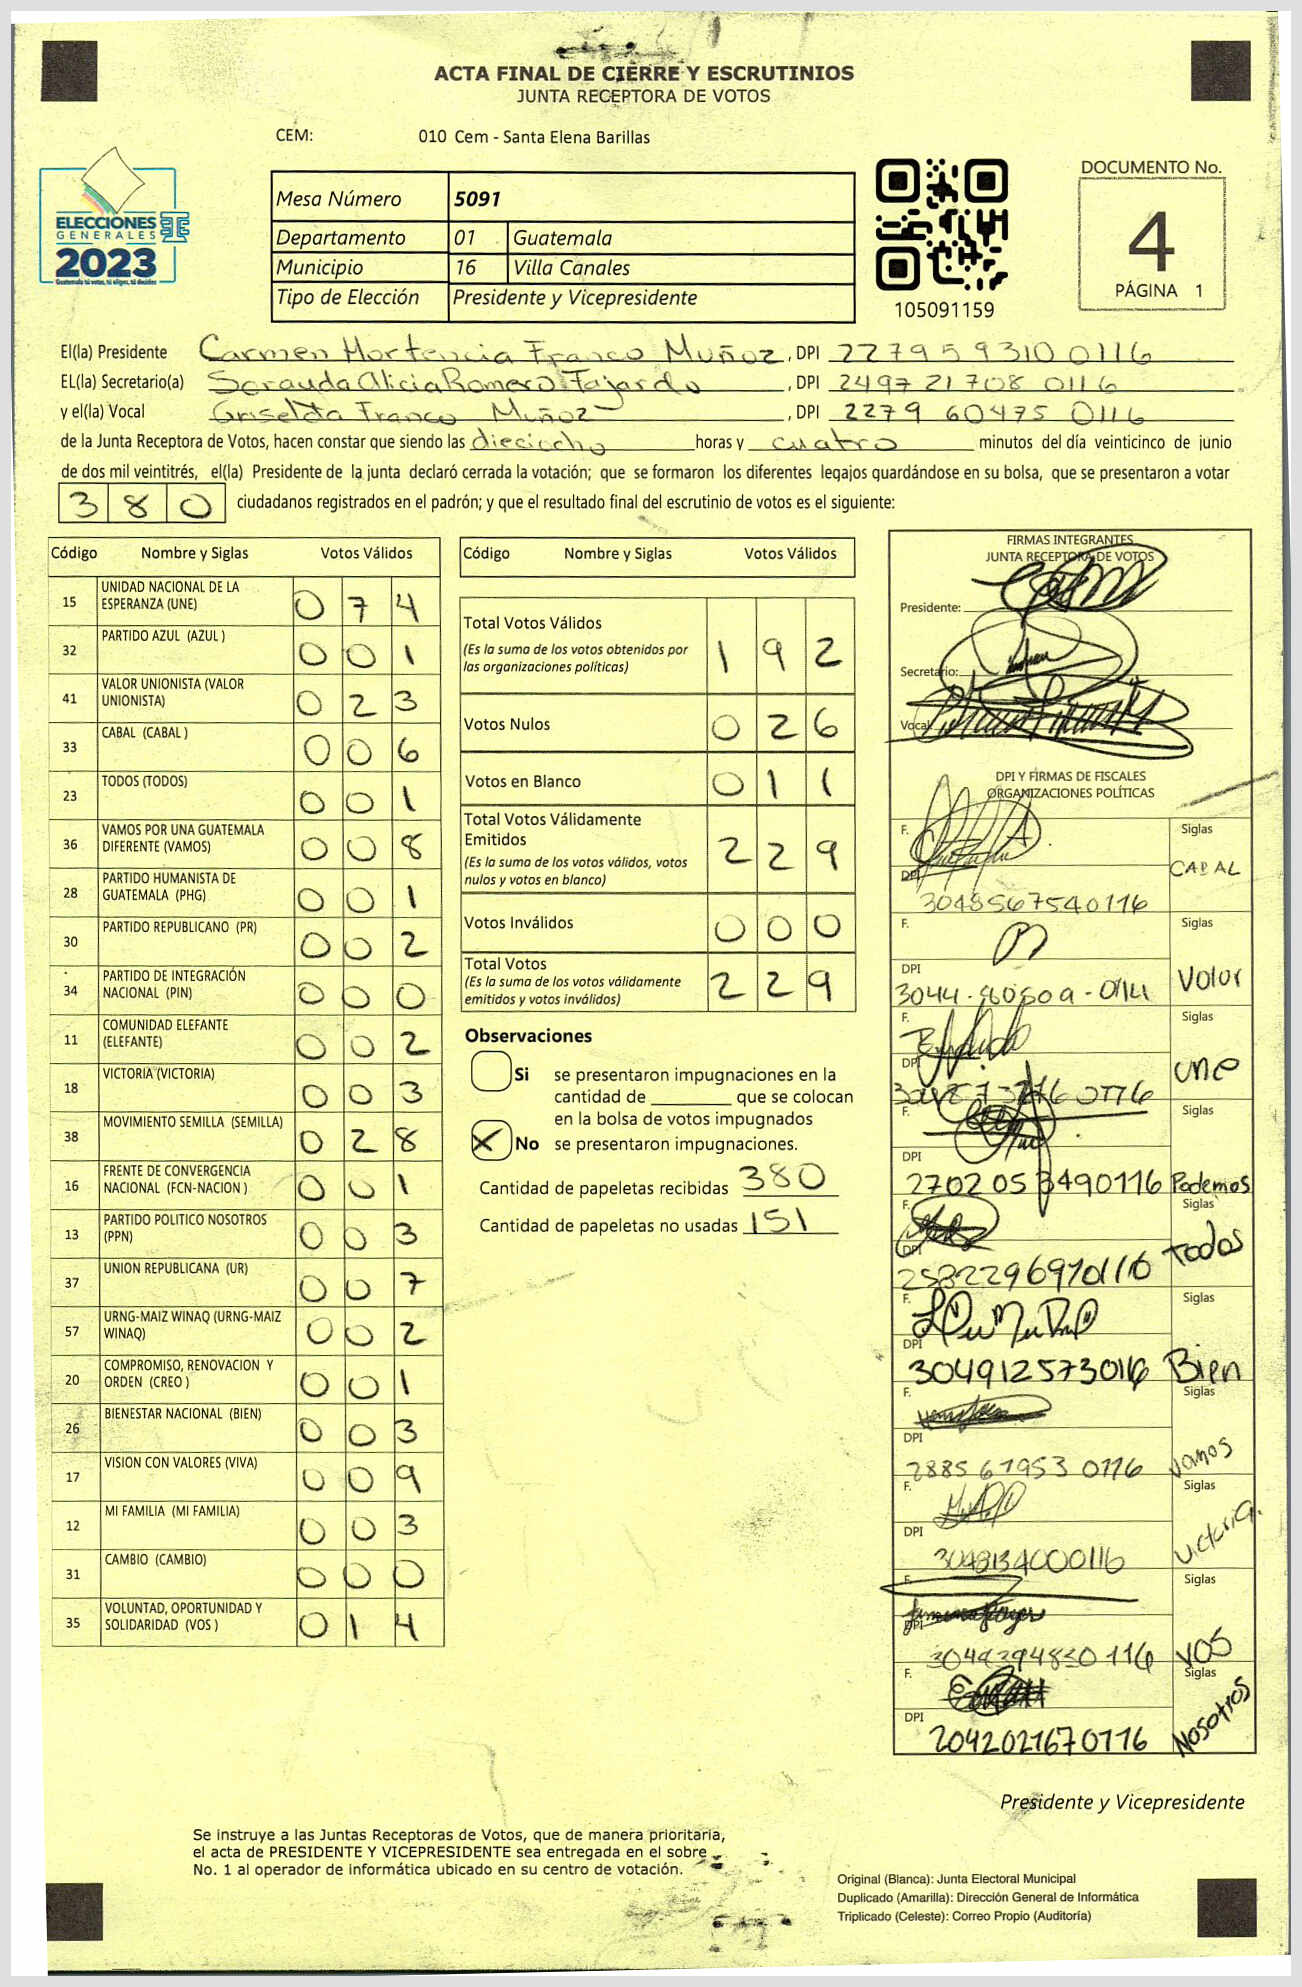 ACTA FINAL DE CIERRE Y ESCRUTINIOS
JUNTA RECEPTORA DE VOTOS
CEM: 010 Cem - Santa Elena Barillas
ELECCIONES
GENERALES
2023
Guatemala tú votas, tú eliges, tú decides
Mesa Número 5091
Departamento 01 Guatemala
Municipio 16 Villa Canales
Tipo de Elección Presidente y Vicepresidente
105091159
DOCUMENTO No.
4
PÁGINA 1
El(la) Presidente Carmen Hortencia Franco Muñoz, DPI 2279 59310 0116
EL(la) Secretario(a) Alicia Romero Fajardo, DPI 2497 21708 0116
y el(la) Vocal Griselda Franco Muñoz, DPI 2279 60475 0116
de la Junta Receptora de Votos, hacen constar que siendo las dieciocho horas y cuatro minutos del día veinticinco de junio
de dos mil veintitrés, el(la) Presidente de la junta declaró cerrada la votación; que se formaron los diferentes legajos guardándose en su bolsa, que se presentaron a votar
380 ciudadanos registrados en el padrón; y que el resultado final del escrutinio de votos es el siguiente:
Código Nombre y Siglas Votos Válidos
15 UNIDAD NACIONAL DE LA ESPERANZA (UNE) 0 7 4
32 PARTIDO AZUL (AZUL ) 0 0 1
41 VALOR UNIONISTA (VALOR UNIONISTA) 0 2 3
33 CABAL (CABAL ) 0 0 6
23 TODOS (TODOS) 0 0 1
36 VAMOS POR UNA GUATEMALA DIFERENTE (VAMOS) 0 0 8
28 PARTIDO HUMANISTA DE GUATEMALA (PHG) 0 0 1
30 PARTIDO REPUBLICANO (PR) 0 0 2
34 PARTIDO DE INTEGRACIÓN NACIONAL (PIN) 0 0 0
11 COMUNIDAD ELEFANTE (ELEFANTE) 0 0 2
18 VICTORIA (VICTORIA) 0 0 3
38 MOVIMIENTO SEMILLA (SEMILLA) 0 2 8
16 FRENTE DE CONVERGENCIA NACIONAL (FCN-NACION ) 0 0 1
13 PARTIDO POLITICO NOSOTROS (PPN) 0 0 3
37 UNION REPUBLICANA (UR) 0 0 7
57 URNG-MAIZ WINAQ (URNG-MAIZ WINAQ) 0 0 2
20 COMPROMISO, RENOVACION Y ORDEN (CREO ) 0 0 1
26 BIENESTAR NACIONAL (BIEN) 0 0 3
17 VISION CON VALORES (VIVA) 0 0 9
12 MI FAMILIA (MI FAMILIA) 0 0 3
31 CAMBIO (CAMBIO) 0 0 0
35 VOLUNTAD, OPORTUNIDAD Y SOLIDARIDAD (VOS ) 0 1 4
Código Nombre y Siglas Votos Válidos
Total Votos Válidos
(Es la suma de los votos obtenidos por
las organizaciones políticas) 1 9 2
Votos Nulos 0 2 6
Votos en Blanco 0 1 1
Total Votos Válidamente
Emitidos
(Es la suma de los votos válidos, votos
nulos y votos en blanco) 2 2 9
Votos Inválidos 0 0 0
Total Votos
(Es la suma de los votos válidamente
emitidos y votos inválidos) 2 2 9
Observaciones
Si se presentaron impugnaciones en la
cantidad de ________ que se colocan
en la bolsa de votos impugnados
X No se presentaron impugnaciones.
Cantidad de papeletas recibidas 380
Cantidad de papeletas no usadas 151
FIRMAS INTEGRANTES
JUNTA RECEPTORA DE VOTOS
Presidente:
Secretario:
Vocal:
DPI Y FIRMAS DE FISCALES
ORGANIZACIONES POLÍTICAS
F. Siglas
DPI CABAL
3048567540116
F. Siglas
DPI Valor
F. Siglas
DPI une
F. Siglas
DPI
2702 053490116 Podemos
F. Siglas
DPI Todos
F. Siglas
DPI
3049125730116 Bien
F. Siglas
DPI Vamos
2885 61953 0116
F. Siglas
DPI Victoria.
3048134000116
F. Siglas
DPI
3049394830 116 VOS
F. Siglas
DPI Nosotros
2042021670116
Presidente y Vicepresidente
Se instruye a las Juntas Receptoras de Votos, que de manera prioritaria,
el acta de PRESIDENTE Y VICEPRESIDENTE sea entregada en el sobre
No. 1 al operador de informática ubicado en su centro de votación.
Original (Blanca): Junta Electoral Municipal
Duplicado (Amarilla): Dirección General de Informática
Triplicado (Celeste): Correo Propio (Auditoría)